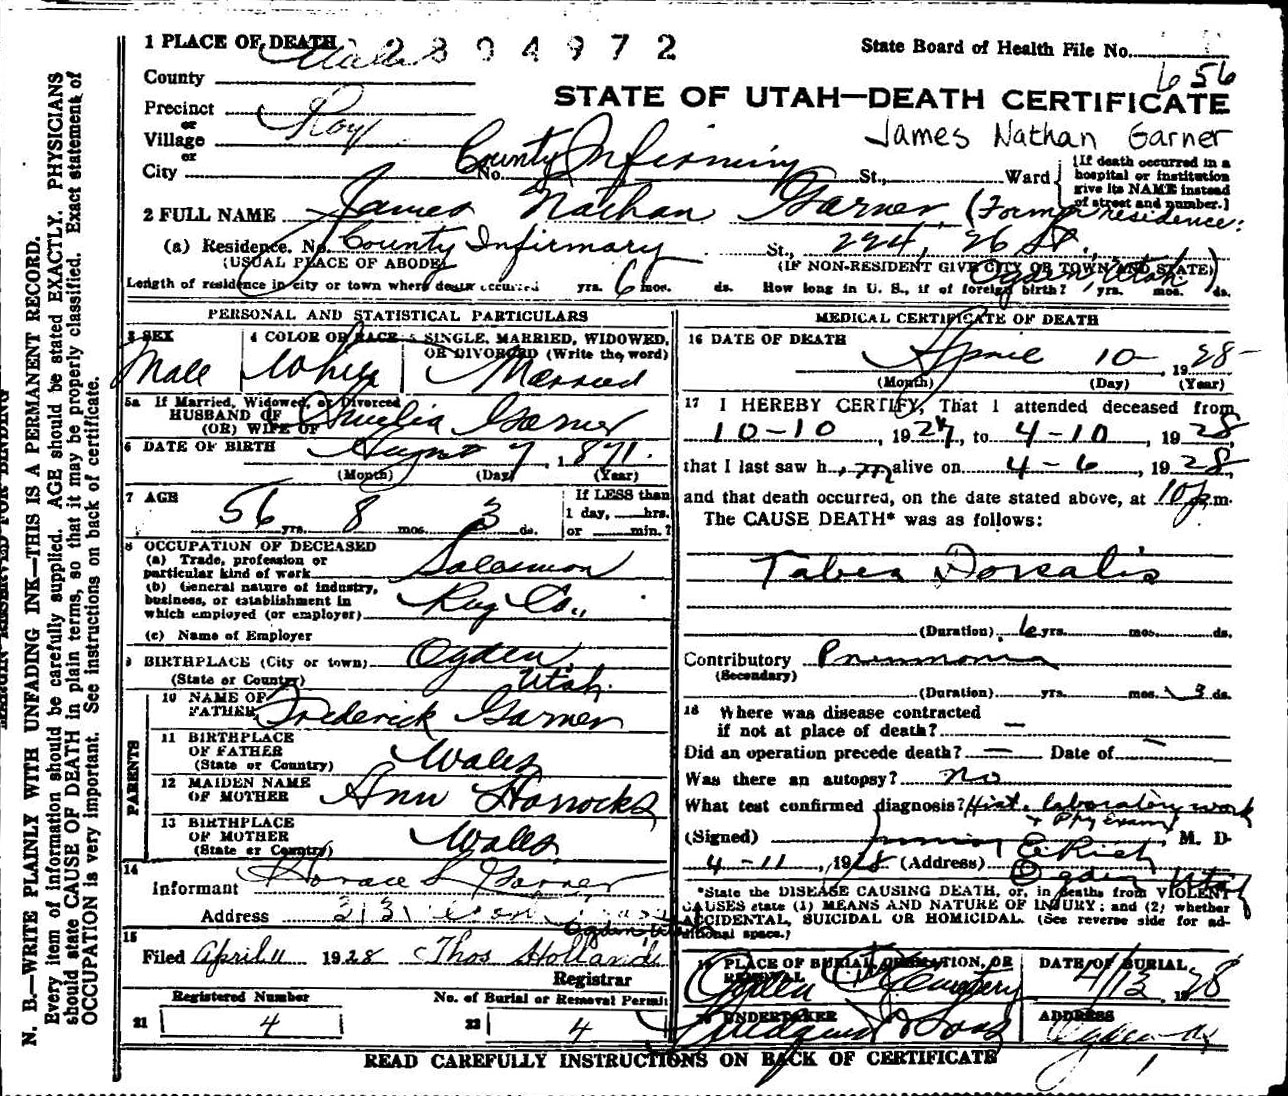 1 PLACE OF DEATH 2 8 0 4 9 7 2
State Board of Health File No.
656
County
STATE OF UTAH—DEATH CERTIFICATE
Precinct Roy
or
James Nathan Garner
Village
or
City County Infirmiry
No. St., Ward
(If death occurred in a hospital or institution give its NAME instead of street and number.)
2 FULL NAME James Nathan Garner, (Former residence:
(a) Residence. No. County Infirmary St., 224, 26 St.
(USUAL PLACE OF ABODE) (IF NON-RESIDENT GIVE CITY OR TOWN AND STATE)
Ogden, Utah)
Length of residence in city or town where death occurred yrs. 6 mos. ds. How long in U. S., if of foreign birth? yrs. mos. ds.
PERSONAL AND STATISTICAL PARTICULARS
3 SEX
Male
4 COLOR OR RACE
White
5 SINGLE, MARRIED, WIDOWED, OR DIVORCED (Write the word)
Married
5a If Married, Widowed, or Divorced
HUSBAND OF
(OR) WIFE OF
Amelia Garner
6 DATE OF BIRTH August 7, 1871.
(Month) (Day) (Year)
7 AGE
56 yrs. 8 mos. 3 ds.
If LESS than
1 day, hrs.
or min.?
8 OCCUPATION OF DECEASED
(a) Trade, profession or
particular kind of work Salesman
(b) General nature of industry,
business, or establishment in
which employed (or employer) Rug Co.,
(c) Name of Employer
9 BIRTHPLACE (City or town) Ogden,
(State or Country) Utah.
PARENTS
10 NAME OF
FATHER Frederick Garner
11 BIRTHPLACE
OF FATHER Wales
(State or Country)
12 MAIDEN NAME
OF MOTHER Ann Horrocks
13 BIRTHPLACE
OF MOTHER Wales
(State or Country)
14
Informant Horace S Garner
Address
Ogden, Utah
15
Filed April 11 1928 Thos Holland
Registrar
Registered Number
21 4
No. of Burial or Removal Permit
22 4
MEDICAL CERTIFICATE OF DEATH
16 DATE OF DEATH
April 10 1928
(Month) (Day) (Year)
17 I HEREBY CERTIFY, That I attended deceased from
10-10, 1927, to 4-10, 1928,
that I last saw him alive on 4-6, 1928
and that death occurred, on the date stated above, at 10 p m.
The CAUSE DEATH* was as follows:
Tabes Dorsalis
(Duration) 6 yrs. mos. ds.
Contributory Pneumonia
(Secondary)
(Duration) yrs. mos. 3 ds.
18 Where was disease contracted
if not at place of death? —
Did an operation precede death? — Date of —
Was there an autopsy? no
What test confirmed diagnosis? Hist. laboratory work
+ Phy Exam
(Signed) Junior E Rich M. D.
4-11, 1928 (Address) Ogden Utah
*State the DISEASE CAUSING DEATH, or, in deaths from VIOLENT
CAUSES state (1) MEANS AND NATURE OF INJURY; and (2) whether
ACCIDENTAL, SUICIDAL OR HOMICIDAL. (See reverse side for additional space.)
19 PLACE OF BURIAL, CREMATION, OR
REMOVAL
Ogden City Cemetery
DATE OF BURIAL
4/13 1928
20 UNDERTAKER
Lindquist & Sons
ADDRESS
Ogden, Ut
READ CAREFULLY INSTRUCTIONS ON BACK OF CERTIFICATE
MARGIN RESERVED FOR BINDING
N. B.—WRITE PLAINLY WITH UNFADING INK—THIS IS A PERMANENT RECORD.
Every item of information should be carefully supplied. AGE should be stated EXACTLY. PHYSICIANS
should state CAUSE OF DEATH in plain terms, so that it may be properly classified. Exact statement of
OCCUPATION is very important. See instructions on back of certificate.